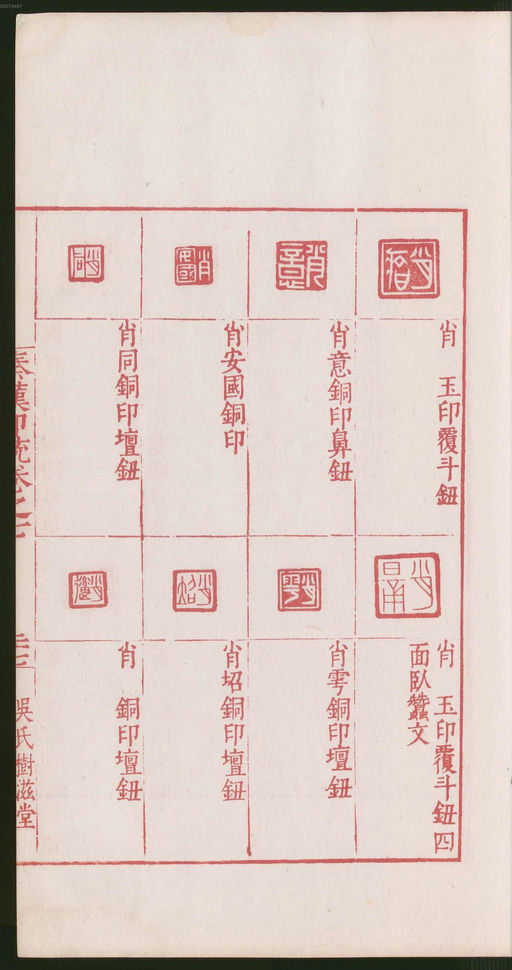 肖　玉印覆斗鈕
肖意銅印鼻鈕
肖安國銅印
肖同銅印壇鈕
肖　玉印覆斗鈕四
面臥蠶文
肖雩銅印壇鈕
肖㚷銅印壇鈕
肖　銅印壇鈕
秦漢印統卷之七
吳氏樹滋堂
00073467